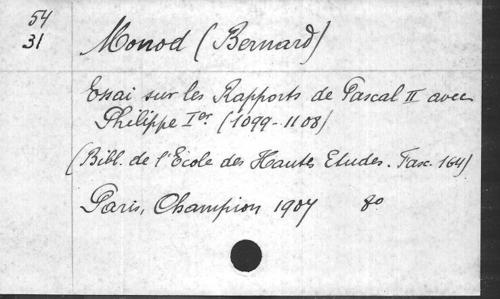 54
31
Monod (Bernard)
Essai sur les Rapports de Pascal II avec
Philippe Ier (1099-1108)
(Bibl. de l'Ecole des Hautes Etudes. Fasc. 164)
Paris, Champion 1907 8o